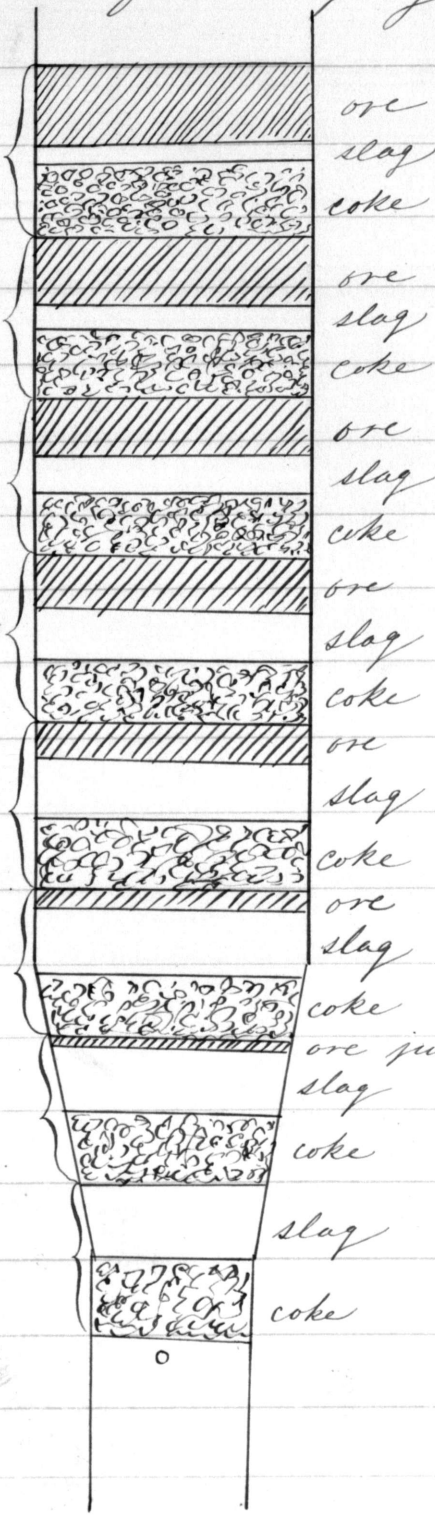 ore
slag
coke
ore
slag
coke
ore
slag
coke
ore
slag
coke
ore
slag
coke
ore
slag
coke
ore
slag
coke
slag
coke